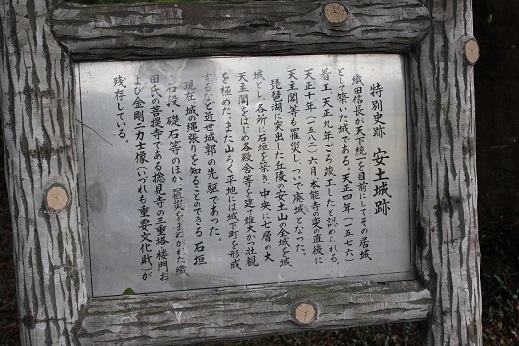 特別史跡 安土城跡
織田信長が天下統一を目前にしてその居城
として築いた城である。天正四年(一五七六)
着工、天正九年ごろ竣工したと認められる。
天正十年(一五八二)六月本能寺の変の直後に
天主閣等も罹災し、ついで廃城となった。
琵琶湖に突出した丘陵の安土山の全域を城
域とし各所に石垣を築き、中央に七層の大
天主閣をはじめ各殿舎等を建て雄大かつ壮観
を極めた。また山ろく平地には城下町を形成
するなど近世城郭の先駆であった。
現在城の縄張りを知ることのできる石垣
石段、礎石等のほか、罹災をまぬがれた織
田氏の菩提寺である摠見寺の三重塔、楼門お
よび金剛二力士像(いづれも重要文化財)が
残存している。